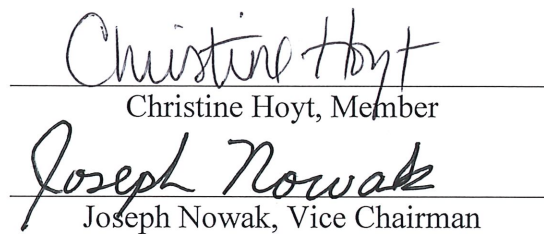 Christine Hoyt
Christine Hoyt, Member
Joseph Nowak
Joseph Nowak, Vice Chairman